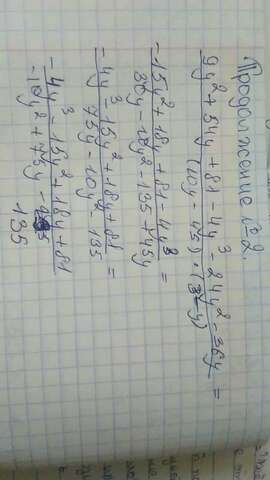 Продолжение №2.
9y² + 54y + 81 - 4y³ - 24y² - 36y =
(10y - 45) · (3 - y)
-15y² + 18y + 81 - 4y³ =
30y - 10y² - 135 + 45y
-4y³ - 15y² + 18y + 81 =
75y - 10y² - 135
-4y³ - 15y² + 18y + 81
-10y² + 75y - 135